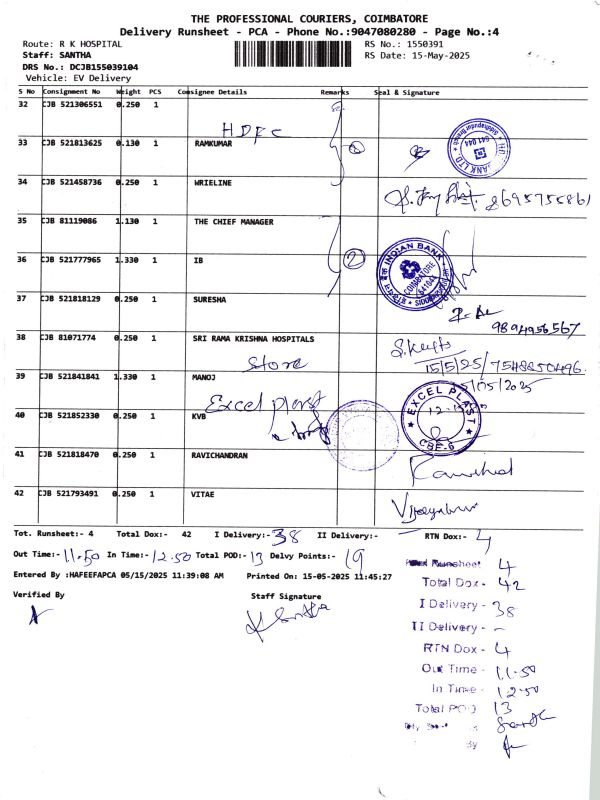 THE PROFESSIONAL COURIERS, COIMBATORE
Delivery Runsheet - PCA - Phone No.:9047080280 - Page No.:4
Route: R K HOSPITAL
RS No.: 1550391
Staff: SANTHA
RS Date: 15-May-2025
DRS No.: DCJB155039104
Vehicle: EV Delivery
S No Consignment No Weight PCS Consignee Details Remarks Seal & Signature
32 CJB 521306551 0.250 1
HDFC
33 CJB 521813625 0.130 1 RAMKUMAR
34 CJB 521458736 0.250 1 WRIELINE
8695755861
35 CJB 81119086 1.130 1 THE CHIEF MANAGER
36 CJB 521777965 1.330 1 IB 2 INDIAN BANK COIMBATORE
37 CJB 521818129 0.250 1 SURESHA
9894956567
38 CJB 81071774 0.250 1 SRI RAMA KRISHNA HOSPITALS
Store 15/5/25/7548850496
39 CJB 521841841 1.330 1 MANOJ
Excel plast EXCEL PLAST
40 CJB 521852330 0.250 1 KVB CBE-6
41 CJB 521818470 0.250 1 RAVICHANDRAN
42 CJB 521793491 0.250 1 VITAE
Tot. Runsheet:- 4 Total Dox:- 42 I Delivery:- 38 II Delivery:- RTN Dox:- 4
Out Time:- 11.50 In Time:- 12.50 Total POD:- 13 Delvy Points:- 19
Entered By :HAFEEFAPCA 05/15/2025 11:39:08 AM Printed On: 15-05-2025 11:45:27
Verified By Staff Signature
Runsheet 4
Total Dox- 42
I Delivery- 38
II Delivery- -
RTN Dox- 4
Out Time- 11.50
In Time- 12.50
Total POD 13
By